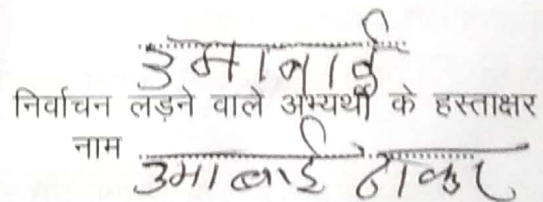 उमाबाई
निर्वाचन लड़ने वाले अभ्यर्थी के हस्ताक्षर
नाम उमाबाई ठाकुर